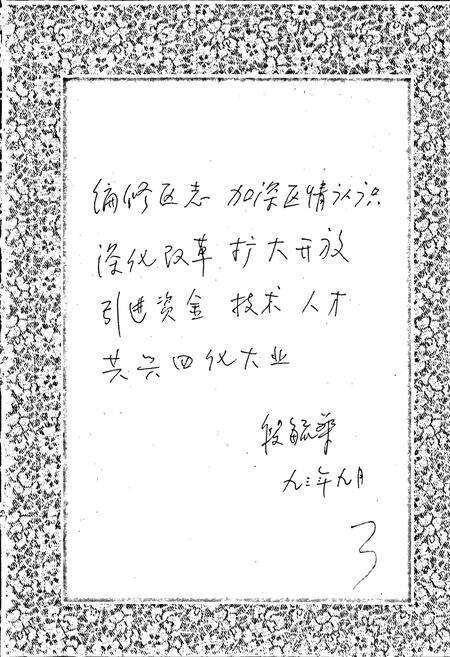 编修区志 加深区情认识
深化改革 扩大开放
引进资金 技术 人才
共兴四化大业
段毓华
九三年九月
3